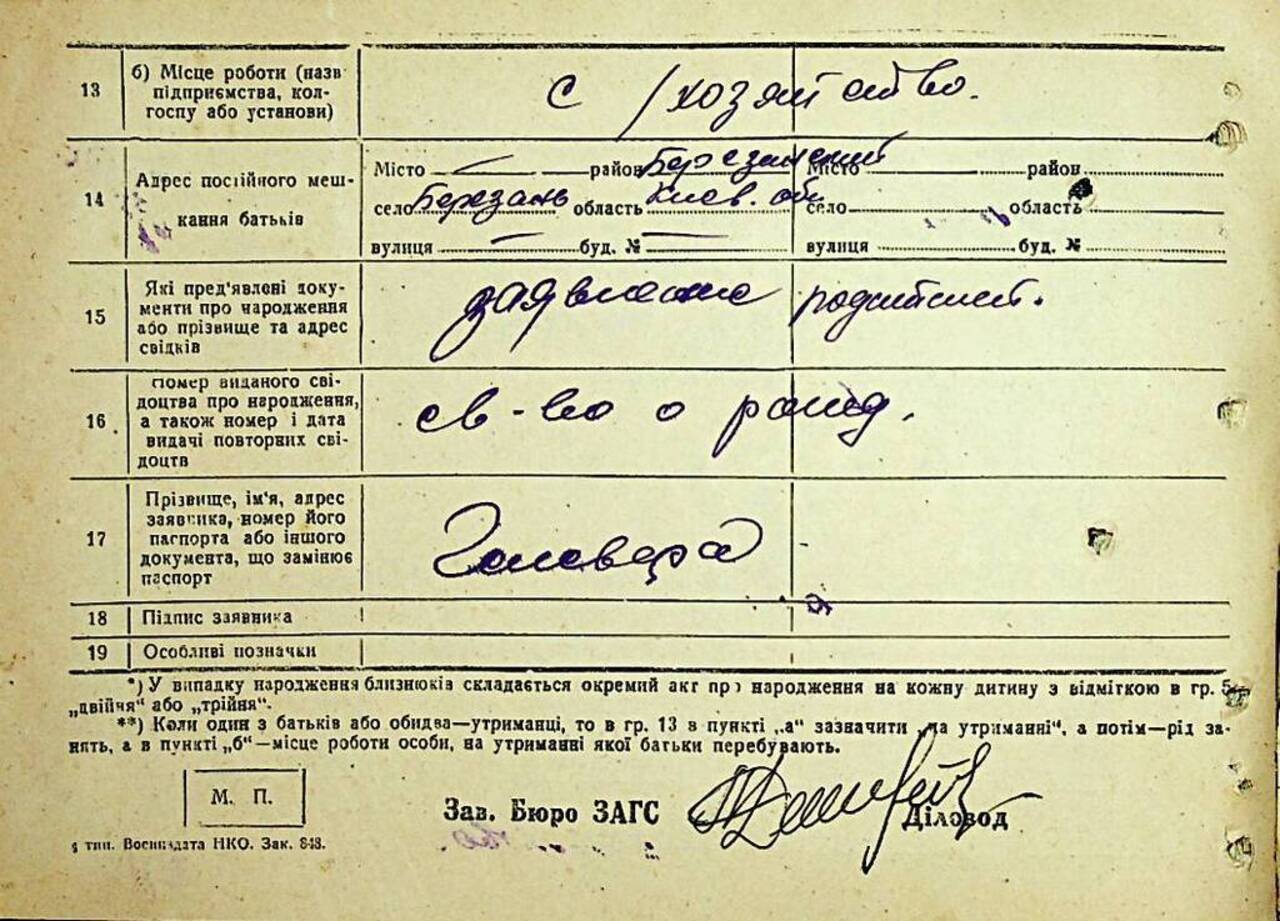 13 б) Місце роботи (назв с/хозяйство.
підприємства, кол-
госпу або установи)
14 Адрес постійного меш-
кання батьків
Місто — район Березанский Місто район
село Березань область Киев. обл село область
вулиця — буд. № — вулиця буд. №
15 Які пред'явлені доку- заявление родителей.
менти про народження
або прізвище та адрес
свідків
16 Номер виданого сві- св-во о рожд.
доцтва про народження,
а також номер і дата
видачі повторних сві-
доцтв
17 Прізвище, ім'я, адрес
заявника, номер його
паспорта або іншого
документа, що замінює
паспорт
18 Підпис заявника
19 Особливі позначки
*) У випадку народження близнюків складається окремий акт про народження на кожну дитину з відміткою в гр. 5
„двійня" або „трійня".
**) Коли один з батьків або обидва—утриманці, то в гр. 13 в пункті „а" зазначити „на утриманні", а потім—рід за-
нять, а в пункті „б"—місце роботи особи, на утриманні якої батьки перебувають.
М. П.
Зав. Бюро ЗАГС Діловод
тип. Воениздата НКО. Зак. 848.